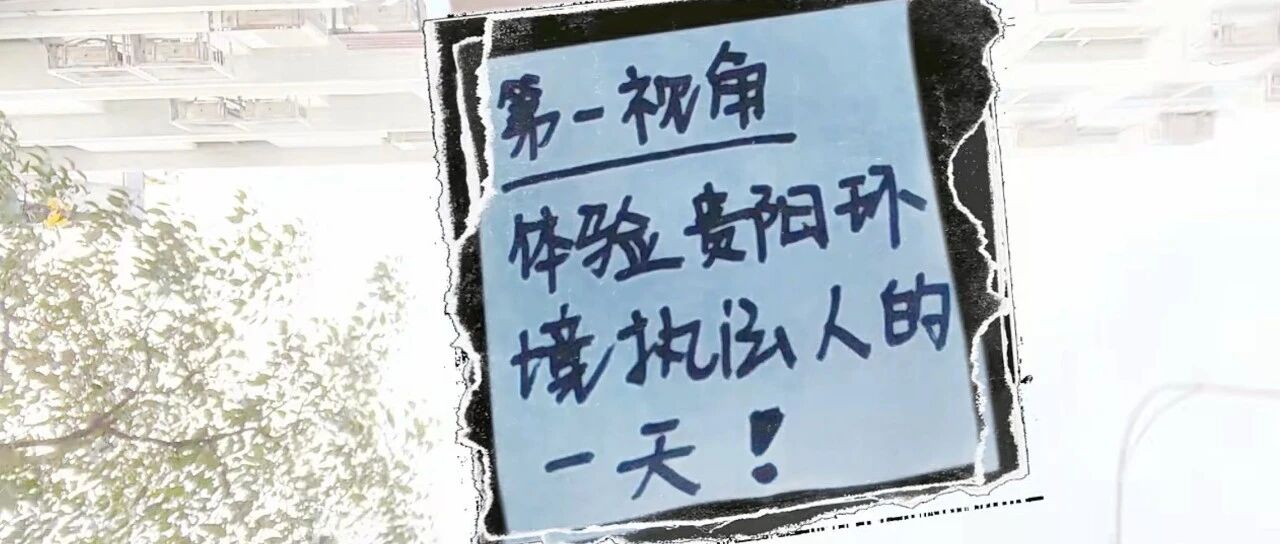 第一视角
体验贵阳环
境执法人的
一天！